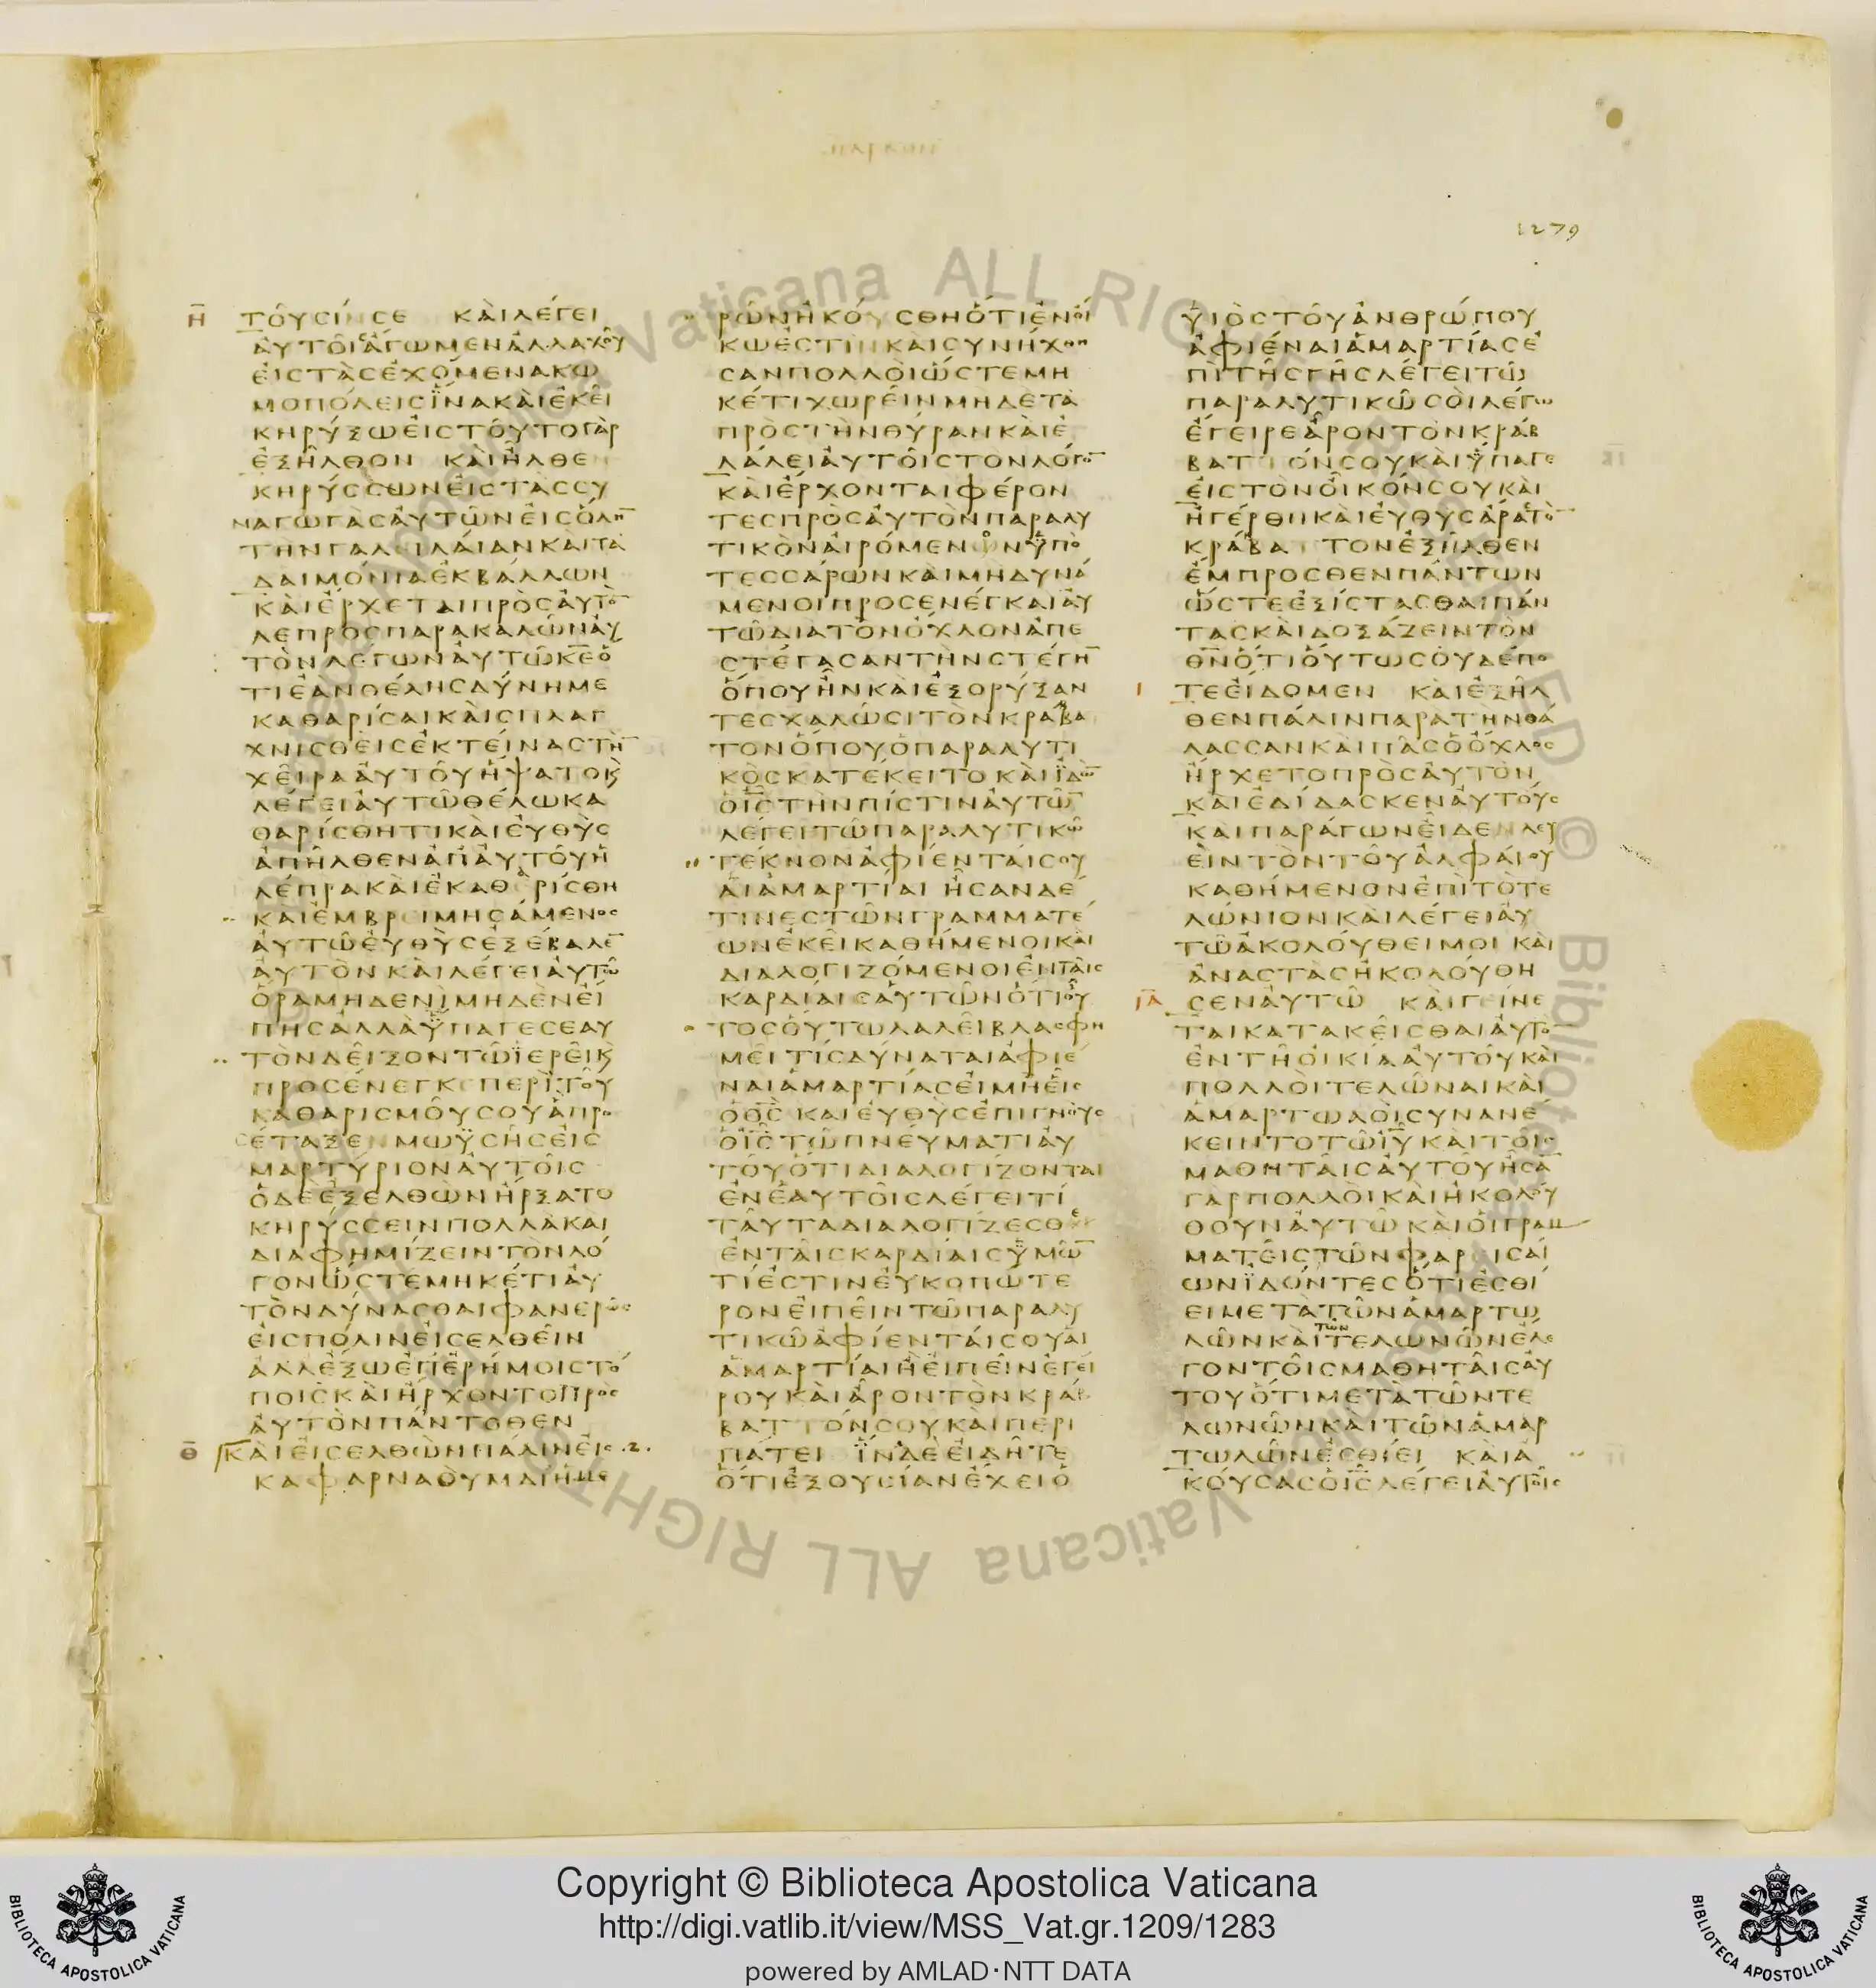 1279
Η̅ ΤΟΥΣΙΝ ΣΕ ΚΑΙ ΛΕΓΕΙ
ΑΥΤΟΙΣ ΑΓΩΜΕΝ ΑΛΛΑΧΟΥ
ΕΙΣ ΤΑΣ ΕΧΟΜΕΝΑΣ ΚΩ
ΜΟΠΟΛΕΙΣ ΪΝΑ ΚΑΙ ΕΚΕΙ
ΚΗΡΥΞΩ ΕΙΣ ΤΟΥΤΟ ΓΑΡ
ΕΞΗΛΘΟΝ ΚΑΙ ΗΛΘΕΝ
ΚΗΡΥΣΣΩΝ ΕΙΣ ΤΑΣ ΣΥ
ΝΑΓΩΓΑΣ ΑΥΤΩΝ ΕΙΣ ΟΛΗ̅
ΤΗΝ ΓΑΛΕΙΛΑΙΑΝ ΚΑΙ ΤΑ
ΔΑΙΜΟΝΙΑ ΕΚΒΑΛΛΩΝ
ΚΑΙ ΕΡΧΕΤΑΙ ΠΡΟΣ ΑΥΤΟ̅
ΛΕΠΡΟΣ ΠΑΡΑΚΑΛΩΝ ΑΥ
ΤΟΝ ΛΕΓΩΝ ΑΥΤΩ Κ̅Ε̅ Ο
ΤΙ ΕΑΝ ΘΕΛΗΣ ΔΥΝΗ ΜΕ
ΚΑΘΑΡΙΣΑΙ ΚΑΙ ΣΠΛΑΓ
ΧΝΙΣΘΕΙΣ ΕΚΤΕΙΝΑΣ ΤΗ̅
ΧΕΙΡΑ ΑΥΤΟΥ ΗΨΑΤΟ Ϗ
ΛΕΓΕΙ ΑΥΤΩ ΘΕΛΩ ΚΑ
ΘΑΡΙΣΘΗΤΙ ΚΑΙ ΕΥΘΥΣ
ΑΠΗΛΘΕΝ ΑΠ ΑΥΤΟΥ Η
ΛΕΠΡΑ ΚΑΙ ΕΚΑΘΕΡΙΣΘΗ
ΚΑΙ ΕΜΒΡΕΙΜΗΣΑΜΕΝΟΣ
ΑΥΤΩ ΕΥΘΥΣ ΕΞΕΒΑΛΕ̅
ΑΥΤΟΝ ΚΑΙ ΛΕΓΕΙ ΑΥΤΩ
ΟΡΑ ΜΗΔΕΝΙ ΜΗΔΕΝ ΕΙ
ΠΗΣ ΑΛΛΑ ΫΠΑΓΕ ΣΕΑΥ
ΤΟΝ ΔΕΙΞΟΝ ΤΩ ΪΕΡΕΙ Ϗ
ΠΡΟΣΕΝΕΓΚΕ ΠΕΡΙ ΤΟΥ
ΚΑΘΑΡΙΣΜΟΥ ΣΟΥ Α ΠΡΟ
ΣΕΤΑΞΕΝ ΜΩΫΣΗΣ ΕΙΣ
ΜΑΡΤΥΡΙΟΝ ΑΥΤΟΙΣ
Ο ΔΕ ΕΞΕΛΘΩΝ ΗΡΞΑΤΟ
ΚΗΡΥΣΣΕΙΝ ΠΟΛΛΑ ΚΑΙ
ΔΙΑΦΗΜΙΖΕΙΝ ΤΟΝ ΛΟ
ΓΟΝ ΩΣΤΕ ΜΗΚΕΤΙ ΑΥ
ΤΟΝ ΔΥΝΑΣΘΑΙ ΦΑΝΕΡΩΣ
ΕΙΣ ΠΟΛΙΝ ΕΙΣΕΛΘΕΙΝ
ΑΛΛ ΕΞΩ ΕΠ ΕΡΗΜΟΙΣ ΤΟ
ΠΟΙΣ ΚΑΙ ΗΡΧΟΝΤΟ ΠΡΟΣ
ΑΥΤΟΝ ΠΑΝΤΟΘΕΝ
Θ̅ ΚΑΙ ΕΙΣΕΛΘΩΝ ΠΑΛΙΝ ΕΙΣ .2.
ΚΑΦΑΡΝΑΟΥΜ ΔΙ ΗΜΕ
ΡΩΝ ΗΚΟΥΣΘΗ ΟΤΙ ΕΝ ΟΙ
ΚΩ ΕΣΤΙΝ ΚΑΙ ΣΥΝΗΧΘΗ
ΣΑΝ ΠΟΛΛΟΙ ΩΣΤΕ ΜΗ
ΚΕΤΙ ΧΩΡΕΙΝ ΜΗΔΕ ΤΑ
ΠΡΟΣ ΤΗΝ ΘΥΡΑΝ ΚΑΙ Ε
ΛΑΛΕΙ ΑΥΤΟΙΣ ΤΟΝ ΛΟΓΟ̅
ΚΑΙ ΕΡΧΟΝΤΑΙ ΦΕΡΟΝ
ΤΕΣ ΠΡΟΣ ΑΥΤΟΝ ΠΑΡΑΛΥ
ΤΙΚΟΝ ΑΙΡΟΜΕΝΟΝ ΫΠΟ
ΤΕΣΣΑΡΩΝ ΚΑΙ ΜΗ ΔΥΝΑ
ΜΕΝΟΙ ΠΡΟΣΕΝΕΓΚΑΙ ΑΥ
ΤΩ ΔΙΑ ΤΟΝ ΟΧΛΟΝ ΑΠΕ
ΣΤΕΓΑΣΑΝ ΤΗΝ ΣΤΕΓΗ̅
ΟΠΟΥ ΗΝ ΚΑΙ ΕΞΟΡΥΞΑΝ
ΤΕΣ ΧΑΛΩΣΙ ΤΟΝ ΚΡΑΒΑ
ΤΟΝ ΟΠΟΥ Ο ΠΑΡΑΛΥΤΙ
ΚΟΣ ΚΑΤΕΚΕΙΤΟ ΚΑΙ ΪΔΩ̅
Ο Ι̅Σ̅ ΤΗΝ ΠΙΣΤΙΝ ΑΥΤΩ̅
ΛΕΓΕΙ ΤΩ ΠΑΡΑΛΥΤΙΚΩ
ΤΕΚΝΟΝ ΑΦΙΕΝΤΑΙ ΣΟΥ
ΑΙ ΑΜΑΡΤΙΑΙ ΗΣΑΝ ΔΕ
ΤΙΝΕΣ ΤΩΝ ΓΡΑΜΜΑΤΕ
ΩΝ ΕΚΕΙ ΚΑΘΗΜΕΝΟΙ ΚΑΙ
ΔΙΑΛΟΓΙΖΟΜΕΝΟΙ ΕΝ ΤΑΙΣ
ΚΑΡΔΙΑΙΣ ΑΥΤΩΝ ΟΤΙ ΟΥ
ΤΟΣ ΟΥΤΩ ΛΑΛΕΙ ΒΛΑΣΦΗ
ΜΕΙ ΤΙΣ ΔΥΝΑΤΑΙ ΑΦΙΕ
ΝΑΙ ΑΜΑΡΤΙΑΣ ΕΙ ΜΗ ΕΙΣ
Ο Θ̅Σ̅ ΚΑΙ ΕΥΘΥΣ ΕΠΙΓΝΟΥΣ
Ο Ι̅Σ̅ ΤΩ ΠΝΕΥΜΑΤΙ ΑΥ
ΤΟΥ ΟΤΙ ΔΙΑΛΟΓΙΖΟΝΤΑΙ
ΕΝ ΕΑΥΤΟΙΣ ΛΕΓΕΙ ΤΙ
ΤΑΥΤΑ ΔΙΑΛΟΓΙΖΕΣΘΕ
ΕΝ ΤΑΙΣ ΚΑΡΔΙΑΙΣ ΫΜΩ̅
ΤΙ ΕΣΤΙΝ ΕΥΚΟΠΩΤΕ
ΡΟΝ ΕΙΠΕΙΝ ΤΩ ΠΑΡΑΛΥ
ΤΙΚΩ ΑΦΙΕΝΤΑΙ ΣΟΥ ΑΙ
ΑΜΑΡΤΙΑΙ Η ΕΙΠΕΙΝ ΕΓΕΙ
ΡΟΥ ΚΑΙ ΑΡΟΝ ΤΟΝ ΚΡΑΒ
ΒΑΤΤΟΝ ΣΟΥ ΚΑΙ ΠΕΡΙ
ΠΑΤΕΙ ΪΝΑ ΔΕ ΕΙΔΗΤΕ
ΟΤΙ ΕΞΟΥΣΙΑΝ ΕΧΕΙ Ο
ΥΙΟΣ ΤΟΥ ΑΝΘΡΩΠΟΥ
ΑΦΙΕΝΑΙ ΑΜΑΡΤΙΑΣ Ε
ΠΙ ΤΗΣ ΓΗΣ ΛΕΓΕΙ ΤΩ
ΠΑΡΑΛΥΤΙΚΩ ΣΟΙ ΛΕΓΩ
ΕΓΕΙΡΕ ΑΡΟΝ ΤΟΝ ΚΡΑΒ
ΒΑΤΤΟΝ ΣΟΥ ΚΑΙ ΫΠΑΓΕ
ΕΙΣ ΤΟΝ ΟΙΚΟΝ ΣΟΥ ΚΑΙ
ΗΓΕΡΘΗ ΚΑΙ ΕΥΘΥΣ ΑΡΑΣ ΤΟ̅
ΚΡΑΒΑΤΤΟΝ ΕΞΗΛΘΕΝ
ΕΜΠΡΟΣΘΕΝ ΠΑΝΤΩΝ
ΩΣΤΕ ΕΞΙΣΤΑΣΘΑΙ ΠΑΝ
ΤΑΣ ΚΑΙ ΔΟΞΑΖΕΙΝ ΤΟΝ
Θ̅Ν̅ ΟΤΙ ΟΥΤΩΣ ΟΥΔΕΠΟ
Ι ΤΕ ΕΙΔΟΜΕΝ ΚΑΙ ΕΞΗΛ
ΘΕΝ ΠΑΛΙΝ ΠΑΡΑ ΤΗΝ ΘΑ
ΛΑΣΣΑΝ ΚΑΙ ΠΑΣ Ο ΟΧΛΟΣ
ΗΡΧΕΤΟ ΠΡΟΣ ΑΥΤΟΝ
ΚΑΙ ΕΔΙΔΑΣΚΕΝ ΑΥΤΟΥΣ
ΚΑΙ ΠΑΡΑΓΩΝ ΕΙΔΕΝ ΛΕΥ
ΕΙΝ ΤΟΝ ΤΟΥ ΑΛΦΑΙΟΥ
ΚΑΘΗΜΕΝΟΝ ΕΠΙ ΤΟ ΤΕ
ΛΩΝΙΟΝ ΚΑΙ ΛΕΓΕΙ ΑΥ
ΤΩ ΑΚΟΛΟΥΘΕΙ ΜΟΙ ΚΑΙ
ΑΝΑΣΤΑΣ ΗΚΟΛΟΥΘΗ
Ι̅Α̅ ΣΕΝ ΑΥΤΩ ΚΑΙ ΓΕΙΝΕ
ΤΑΙ ΚΑΤΑΚΕΙΣΘΑΙ ΑΥΤΟ̅
ΕΝ ΤΗ ΟΙΚΙΑ ΑΥΤΟΥ ΚΑΙ
ΠΟΛΛΟΙ ΤΕΛΩΝΑΙ ΚΑΙ
ΑΜΑΡΤΩΛΟΙ ΣΥΝΑΝΕ
ΚΕΙΝΤΟ ΤΩ Ι̅Υ̅ ΚΑΙ ΤΟΙΣ
ΜΑΘΗΤΑΙΣ ΑΥΤΟΥ ΗΣΑ̅
ΓΑΡ ΠΟΛΛΟΙ ΚΑΙ ΗΚΟΛΟΥ
ΘΟΥΝ ΑΥΤΩ ΚΑΙ ΟΙ ΓΡΑΜ
ΜΑΤΕΙΣ ΤΩΝ ΦΑΡΕΙΣΑΙ
ΩΝ ΪΔΟΝΤΕΣ ΟΤΙ ΕΣΘΙ
ΕΙ ΜΕΤΑ ΤΩΝ ΑΜΑΡΤΩ
ΛΩΝ ΚΑΙ ΤΩΝ ΤΕΛΩΝΩΝ ΕΛΕ
ΓΟΝ ΤΟΙΣ ΜΑΘΗΤΑΙΣ ΑΥ
ΤΟΥ ΟΤΙ ΜΕΤΑ ΤΩΝ ΤΕ
ΛΩΝΩΝ ΚΑΙ ΤΩΝ ΑΜΑΡ
ΤΩΛΩΝ ΕΣΘΙΕΙ ΚΑΙ Α
ΚΟΥΣΑΣ Ο Ι̅Σ̅ ΛΕΓΕΙ ΑΥΤΟΙΣ
Vaticana ALL RIGHTS RESERVED © Biblioteca Apostolica Vaticana ALL RIGHTS RESERVED
Copyright © Biblioteca Apostolica Vaticana
http://digi.vatlib.it/view/MSS_Vat.gr.1209/1283
powered by AMLAD·NTT DATA
BIBLIOTECA APOSTOLICA VATICANA
BIBLIOTECA APOSTOLICA VATICANA